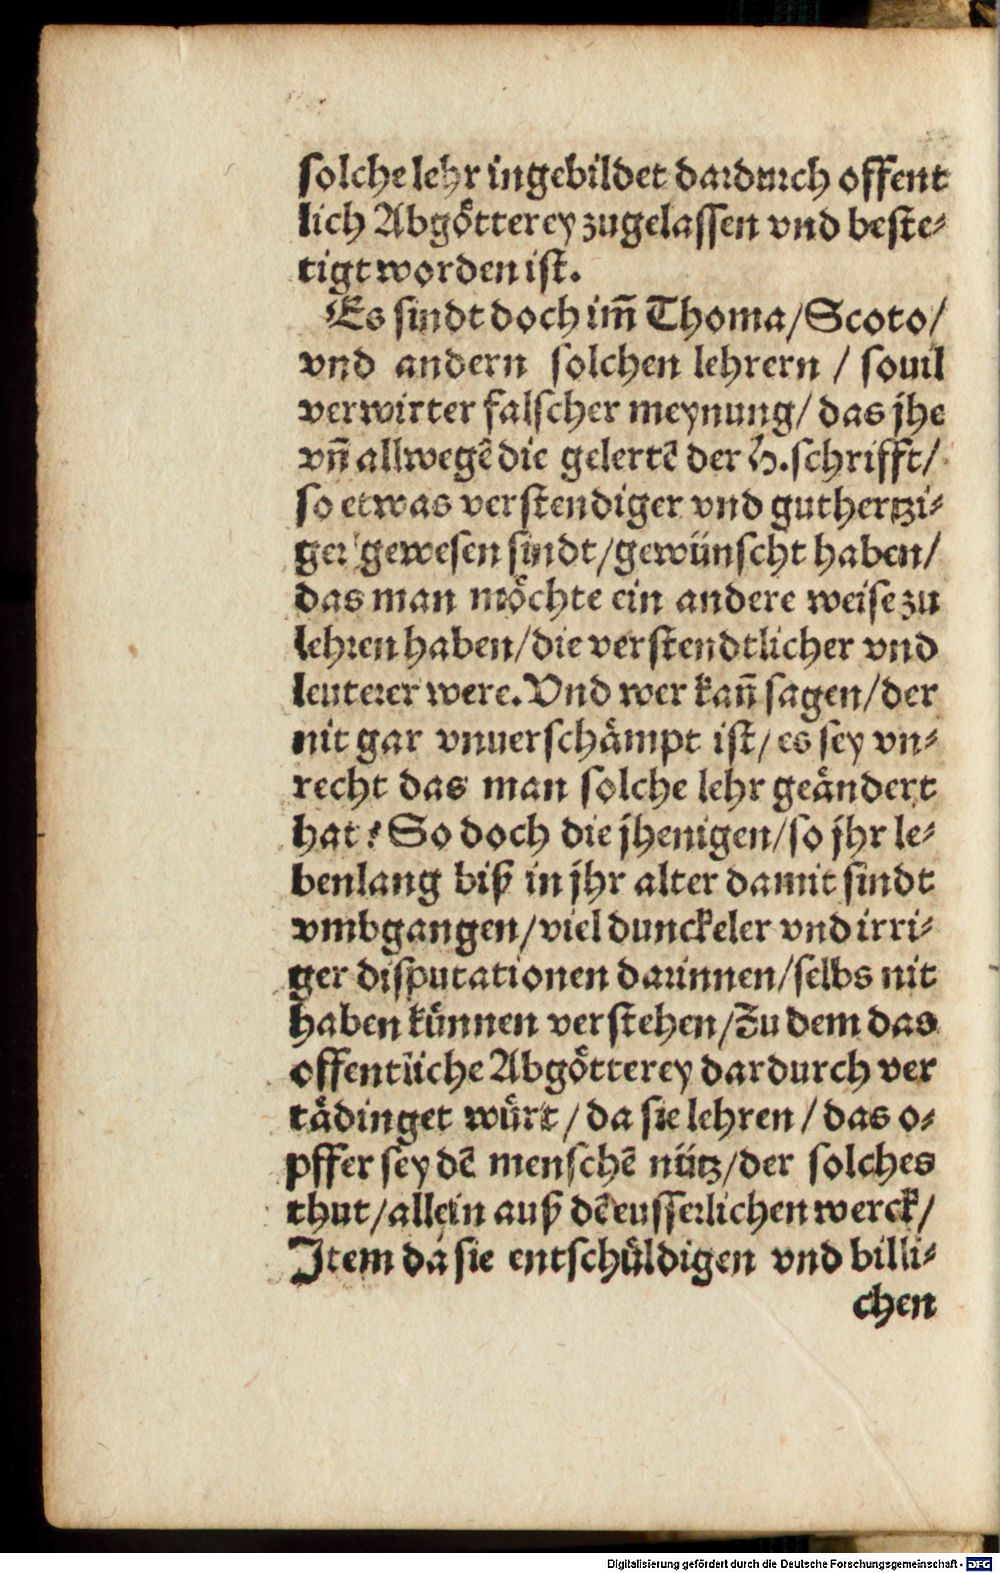 solche lehr ingebildet dardurch offent
lich Abgötterey zugelassen vnd beste⸗
tigt worden ist.
Es sindt doch im̃ Thoma/Scoto/
vnd andern solchen lehrern / souil
verwirter falscher meynung/ das jhe
vñ allwegẽ die gelertẽ der H.schrifft/
so etwas verstendiger vnd guthertzi⸗
ger gewesen sindt/gewünscht haben/
das man möchte ein andere weise zu
lehren haben/die verstendtlicher vnd
leuterer were.Vnd wer kañ sagen/der
nit gar vnuerschämpt ist/ es sey vn⸗
recht das man solche lehr geändert
hat? So doch die jhenigen/so jhr le⸗
benlang biß in jhr alter damit sindt
vmbgangen/viel dunckeler vnd irri⸗
ger disputationen darinnen/selbs nit
haben künnen verstehen/Zu dem das
offentliche Abgötterey dardurch ver
tädinget würt / da sie lehren / das o⸗
pffer sey dẽ menschẽ nütz/der solches
thut/allein auß dẽ eusserlichen werck/
Item da sie entschüldigen vnd billi⸗
chen
Digitalisierung gefördert durch die Deutsche Forschungsgemeinschaft - DFG